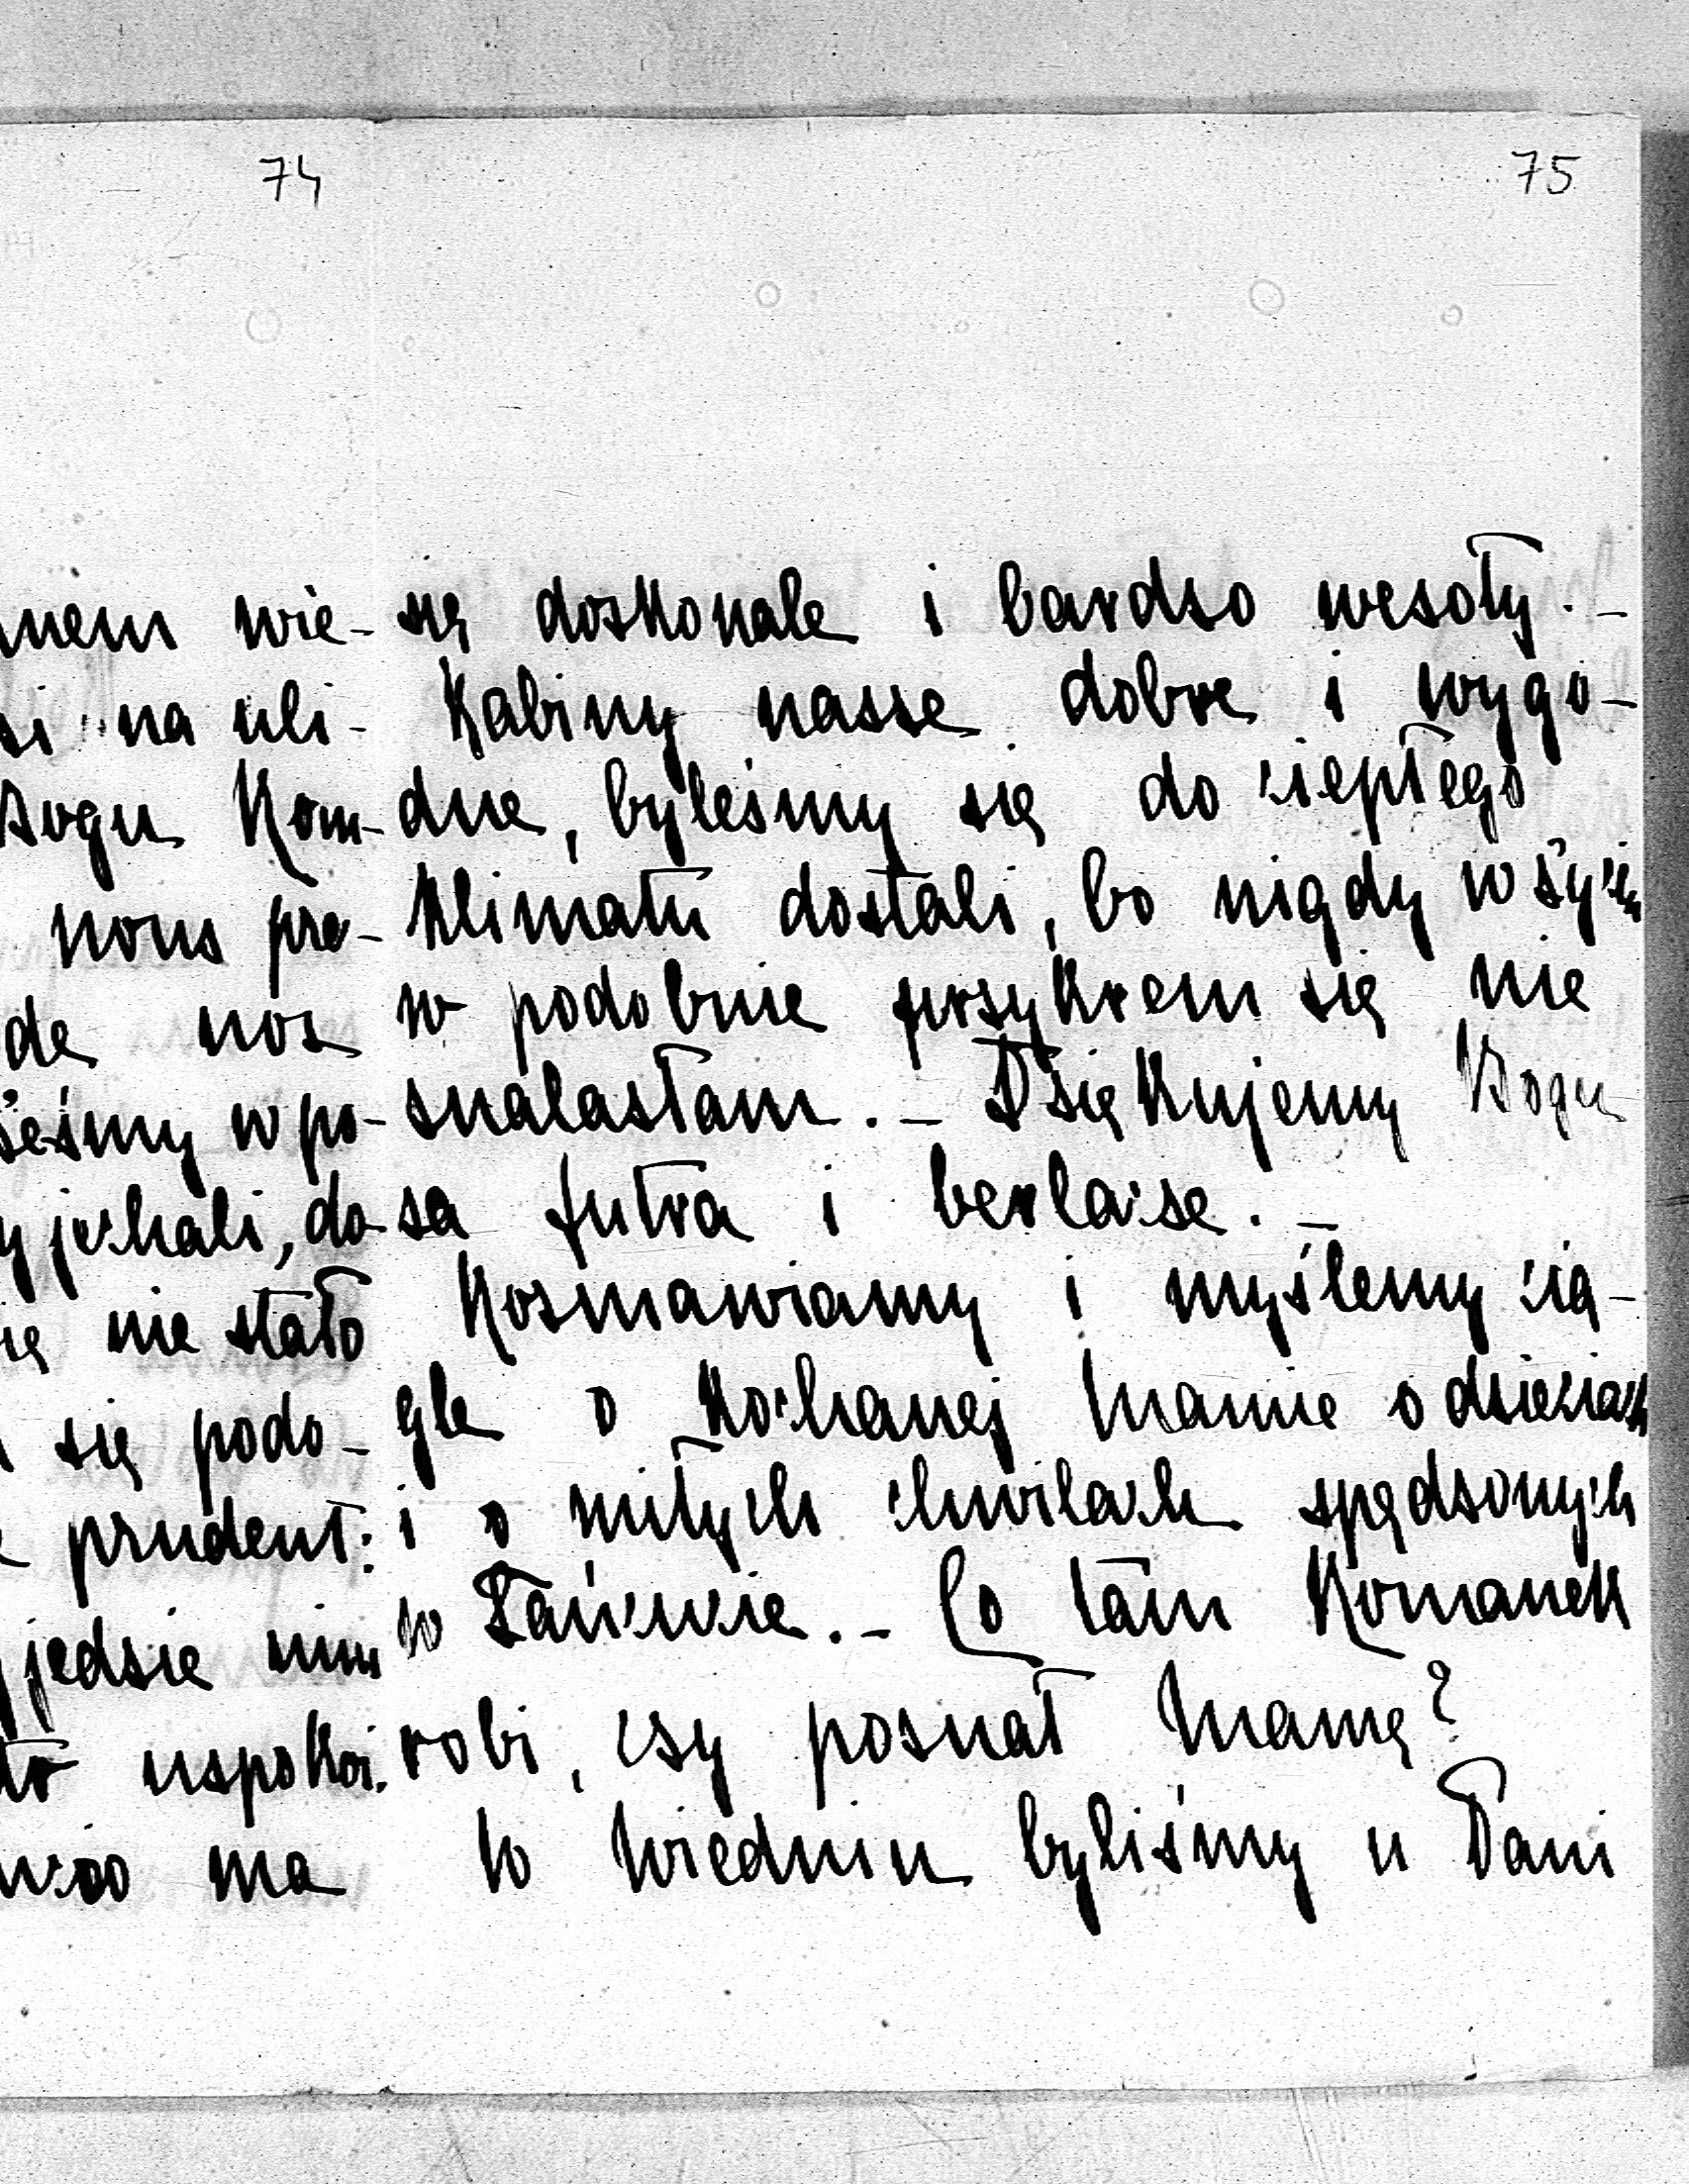 74
nem wie-
si na uli-
Bogu Rom-
nous pre-
de nos
seśmy w po-
y jechali, do-
ię nie stało
się podo-
prudent:
jedzie nim
uspokoi-
ma
75
się doskonale i bardzo wesoły. –
Kabiny nasze dobre i wygo-
dne, byleśmy się do ciepłego
klimatu dostali, bo nigdy w życiu
w podobnie przykrem się nie
znalazłam. – Dziękujemy Bogu
za futra i berlacze. –
Rozmawiamy i myślemy cią-
gle o Kochanej Mamie o dzieciach
i o miłych chwilach spędzonych
w Łańcucie. – Co tam Romanek
robi, czy poznał Mamę?
W Wiedniu byliśmy u Pani